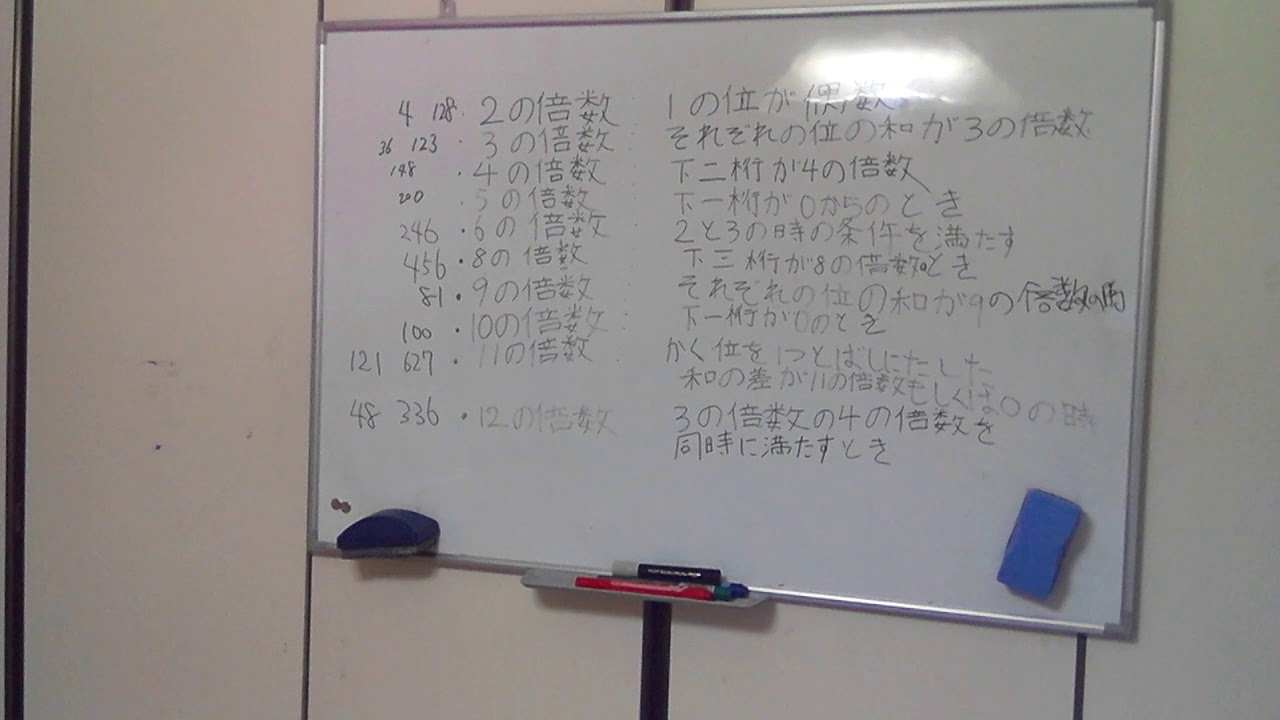 4 128・2の倍数 : 1の位が偶数
36 123・3の倍数 : それぞれの位の和が3の倍数
148 ・4の倍数 : 下二桁が4の倍数
200 ・5の倍数 : 下一桁が0からのとき
246・6の倍数 : 2と3の時の条件を満たす
456・8の倍数 : 下三桁が8の倍数のとき
81・9の倍数 : それぞれの位の和が9の倍数の
100・10の倍数 : 下一桁が0のとき
121 627・11の倍数 : かく位を1つとばしにたした
和の差が11の倍数もしくは0の時
48 336・12の倍数 3の倍数の4の倍数を
同時に満たすとき